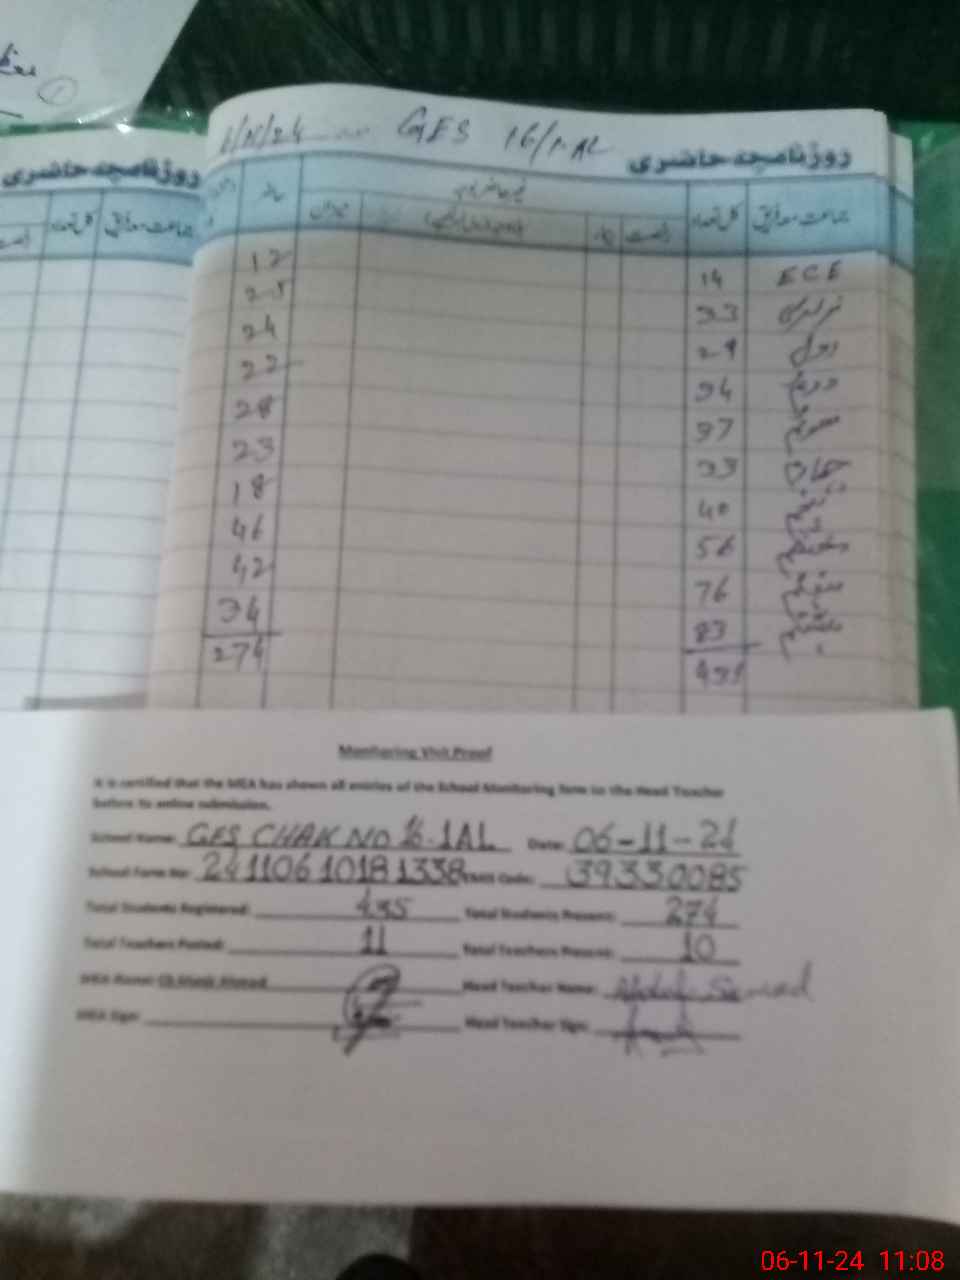 GES 16/1.AL
روزنامچہ حاضری
روزنامچہ حاضری
جماعت معہ فریق کل تعداد
جماعت معہ فریق کل تعداد رخصت حاضر
ECE 14 12
نرسری 33 25
اول 29 24
دوم 34 22
سوم 37 28
چہارم 33 23
پنجم 40 18
ششم 56 46
ہفتم 76 42
ہشتم 83 34
435 274
Monitoring Visit Proof
It is certified that the MEA has shown all entries of the School Monitoring form to the Head Teacher
before its online submission.
School Name: GES CHAK NO 16.1AL Date: 06-11-24
School Form No: 24110610181338 EMIS Code: 39330085
Total Students Registered: 435 Total Students Present: 274
Total Teachers Posted: 11 Total Teachers Present: 10
MEA Name: Head Teacher Name: Abdul Samad
MEA Sign: Head Teacher Sign:
06-11-24 11:08